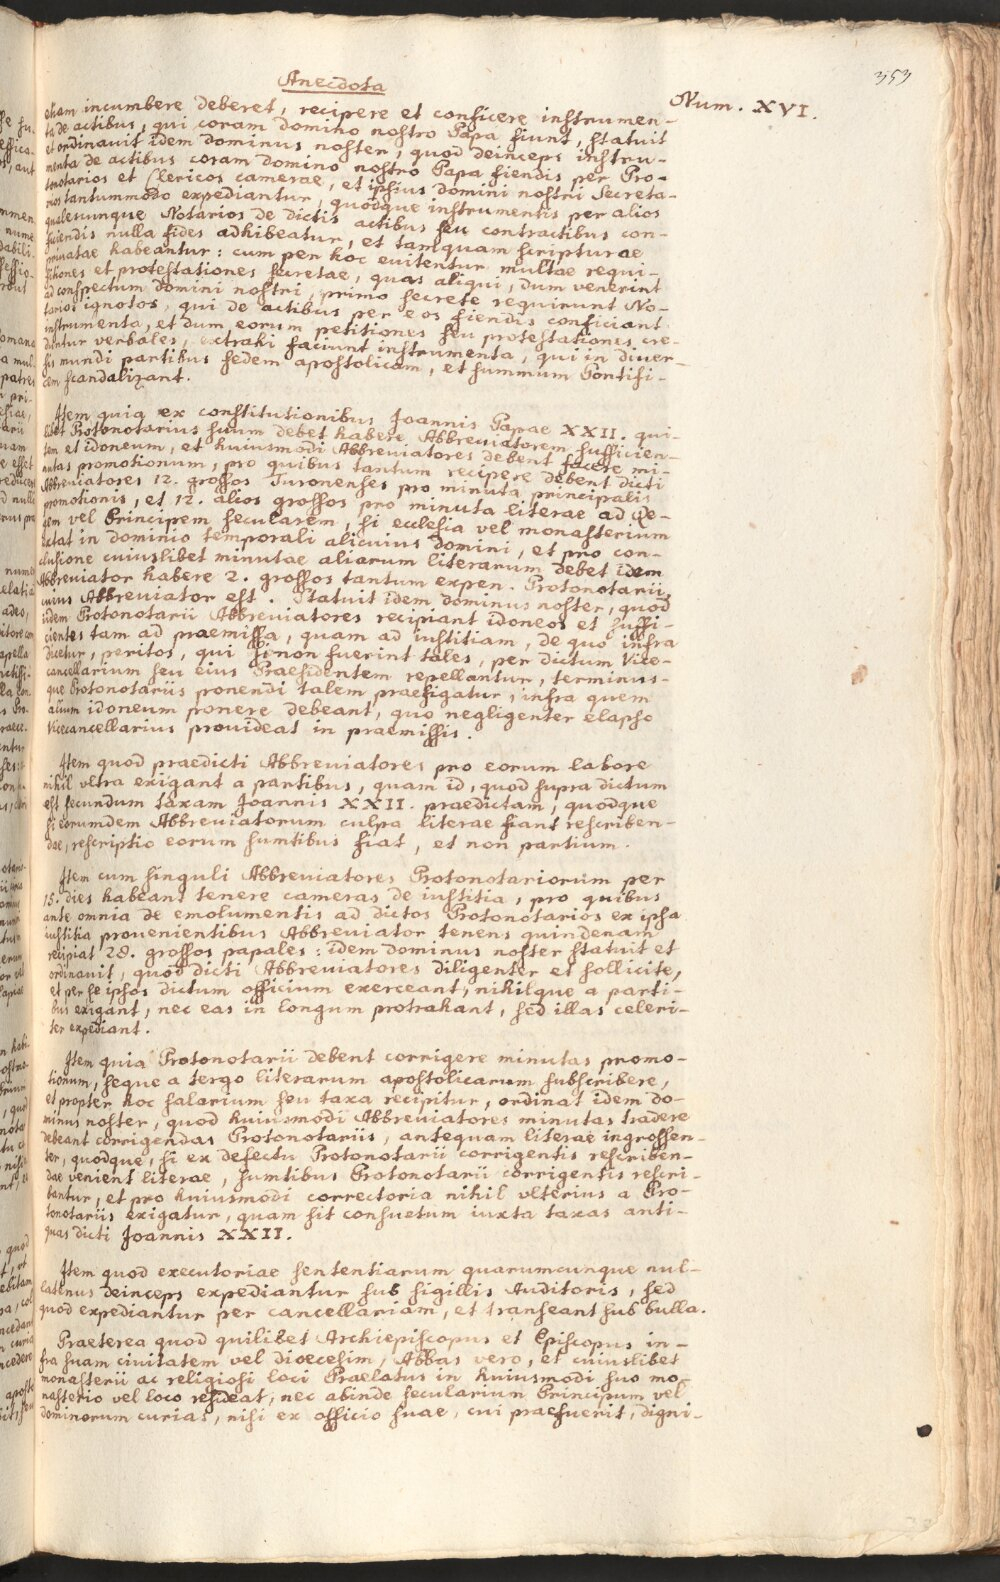 353
Anecdota
Num. XVI.
etiam incumbere deberet, recipere et conficere instrumen-
ta de actibus, qui coram domino nostro Papa fiunt, statuit
et ordinauit idem dominus noster, quod deinceps instru-
menta de actibus coram domino nostro Papa fiendis per Pro-
tonotarios et Clericos camerae, et ipsius domini nostri Secreta-
rios tantummodo expediantur, quodque instrumentis per alios
qualescunque Notarios de dictis actibus seu contractibus con-
ficiendis nulla fides adhibeatur, et tamquam scripturae
priuatae habeantur: cum per hoc euitentur multae requi-
sitiones et protestationes secretae, quas aliqui, dum venerint
ad conspectum domini nostri, primo secrete requirunt No-
tarios ignotos, qui de actibus per eos fiendis conficiant
instrumenta, et dum eorum petitiones seu protestationis cre-
duntur verbales, extrahi faciunt instrumenta, qui in diuer-
sis mundi partibus sedem apostolicam, et summum Pontifi-
cem scandalizant.
Item quia ex constitutionibus Joannis Papae XXII. qui-
libet Protonotarius suum debet habere Abbreuiatorem sufficien-
tem et idoneum, et huiusmodi Abbreuiatores debent facere mi-
nutas promotionum, pro quibus tantum recipere debent dicti
Abbreuiatores 12. grossos Turonenses pro minuta principalis
promotionis, et 12. alios grossos pro minuta literae ad Re-
gem vel Principem secularem, si ecclesia vel monasterium
extat in dominio temporali alicuius domini, et pro con-
clusione cuiuslibet minutae aliarum literarum debet idem
Abbreuiator habere 2. grossos tantum expen. Protonotarii,
cuius Abbreuiator est. Statuit idem dominus noster, quod
iidem Protonotarii Abbreuiatores recipiant idoneos et suffi-
cientes tam ad praemissa, quam ad iustitiam, de quo infra
dicetur, peritos, qui si non fuerint tales, per dictum Vice-
cancellarium seu eius Praesidentem repellantur, terminus-
que Protonotariis ponendi talem praefigatur, infra quem
alium idoneum ponere debeant, quo negligenter elapso
Vicecancellarius prouideat in praemissis.
Item quod praedicti Abbreuiatores pro eorum labore
nihil vltra exigant a partibus, quam id, quod supra dictum
est secundum taxam Joannis XXII. praedictam, quodque
si eorumdem Abbreuiatorum culpa literae fiant rescriben-
dae, rescriptio eorum sumtibus fiat, et non partium.
Item cum singuli Abbreuiatores Protonotariorum per
15. dies habeant tenere cameras de iustitia, pro quibus
ante omnia de emolumentis ad dictos Protonotarios ex ipsa
iustitia prouenientibus Abbreuiator tenens quindenam
recipiat 28. grossos papales: idem dominus noster statuit et
ordinauit, quod dicti Abbreuiatores diligenter et sollicite,
et per se ipsos dictum officium exerceant, nihilque a parti-
bus exigant, nec eas in longum protrahant, sed illas celeri-
ter expediant.
Item quia Protonotarii debent corrigere minutas promo-
tionum, seque a tergo literarum apostolicarum subscribere,
et propter hoc salarium seu taxa recipitur, ordinat idem do-
minus noster, quod huiusmodi Abbreuiatores minutas tradere
debeant corrigendas Protonotariis, antequam literae ingrossen-
ter, quodque, si ex defectu Protonotarii corrigentis rescriben-
dae venient literae, sumtibus Protonotarii corrigentis rescri-
bantur, et pro huiusmodi correctoria nihil vlterius a Pro-
tonotariis exigatur, quam sit consuetum iuxta taxas anti-
quas dicti Joannis XXII.
Item quod executoriae sententiarum quarumcunque nul-
latenus deinceps expediantur sub sigillis Auditoris, sed
quod expediantur per cancellariam, et transeant sub bulla.
Praeterea quod quilibet Archiepiscopus et Episcopus in-
fra suam ciuitatem vel dioecesim, Abbas vero, et cuiuslibet
monasterii ac religiosi loci Praelatus in huiusmodi suo mo-
nasterio vel loco resideat, nec abinde secularium Principum vel
dominorum curias, nisi ex officio suae, cui praefuerit, digni-